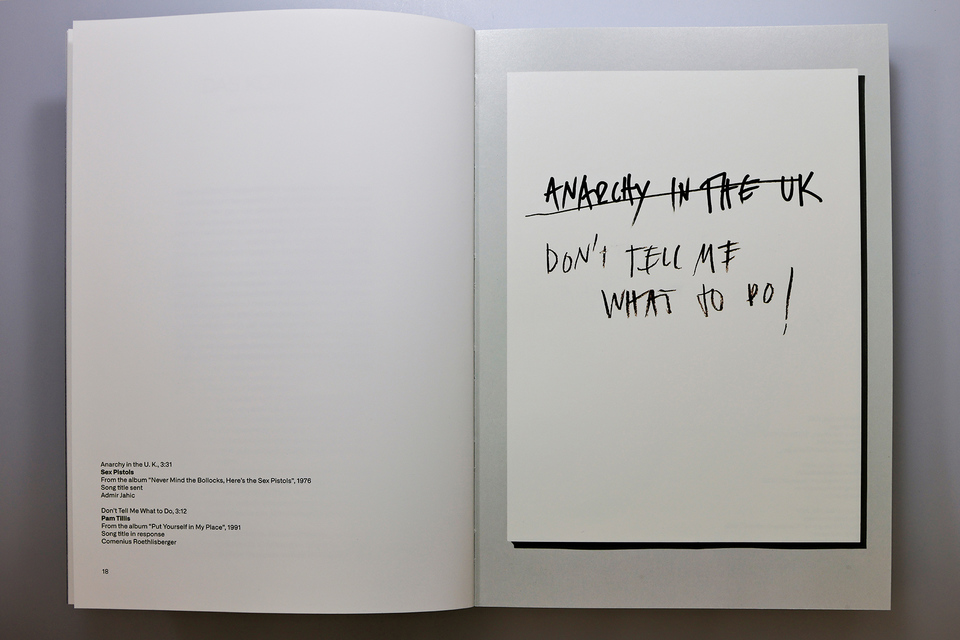 Anarchy in the U. K., 3:31
Sex Pistols
From the album "Never Mind the Bollocks, Here's the Sex Pistols", 1976
Song title sent
Admir Jahic
Don't Tell Me What to Do, 3:12
Pam Tillis
From the album "Put Yourself in My Place", 1991
Song title in response
Comenius Roethlisberger
18
ANARCHY IN THE UK
DON'T TELL ME
WHAT TO DO!